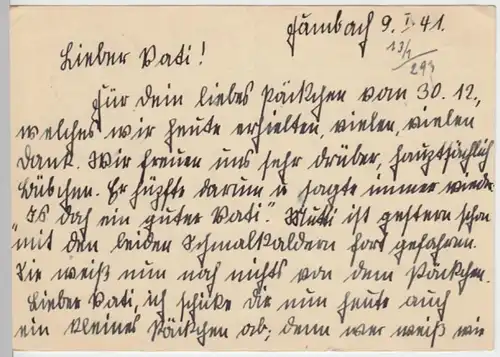 Fambach 9. I. 41.
13/1
293
Lieber Vati!
Für Dein liebes Päckchen vom 30.12.,
welches wir heute erhielten, vielen, vielen
Dank. Wir freuen uns sehr drüber, hauptsächlich
Bübchen. Er hüpfte darum u sagte immer wieder
"Is doch ein guter Vati". Mutti ist gestern schon
mit den beiden Schmalkaldern fort gefahren.
Sie weiß nun noch nichts von dem Päckchen.
Lieber Vati, ich schicke Dir nun heute auch
ein kleines Päckchen ab; denn wer weiß wie